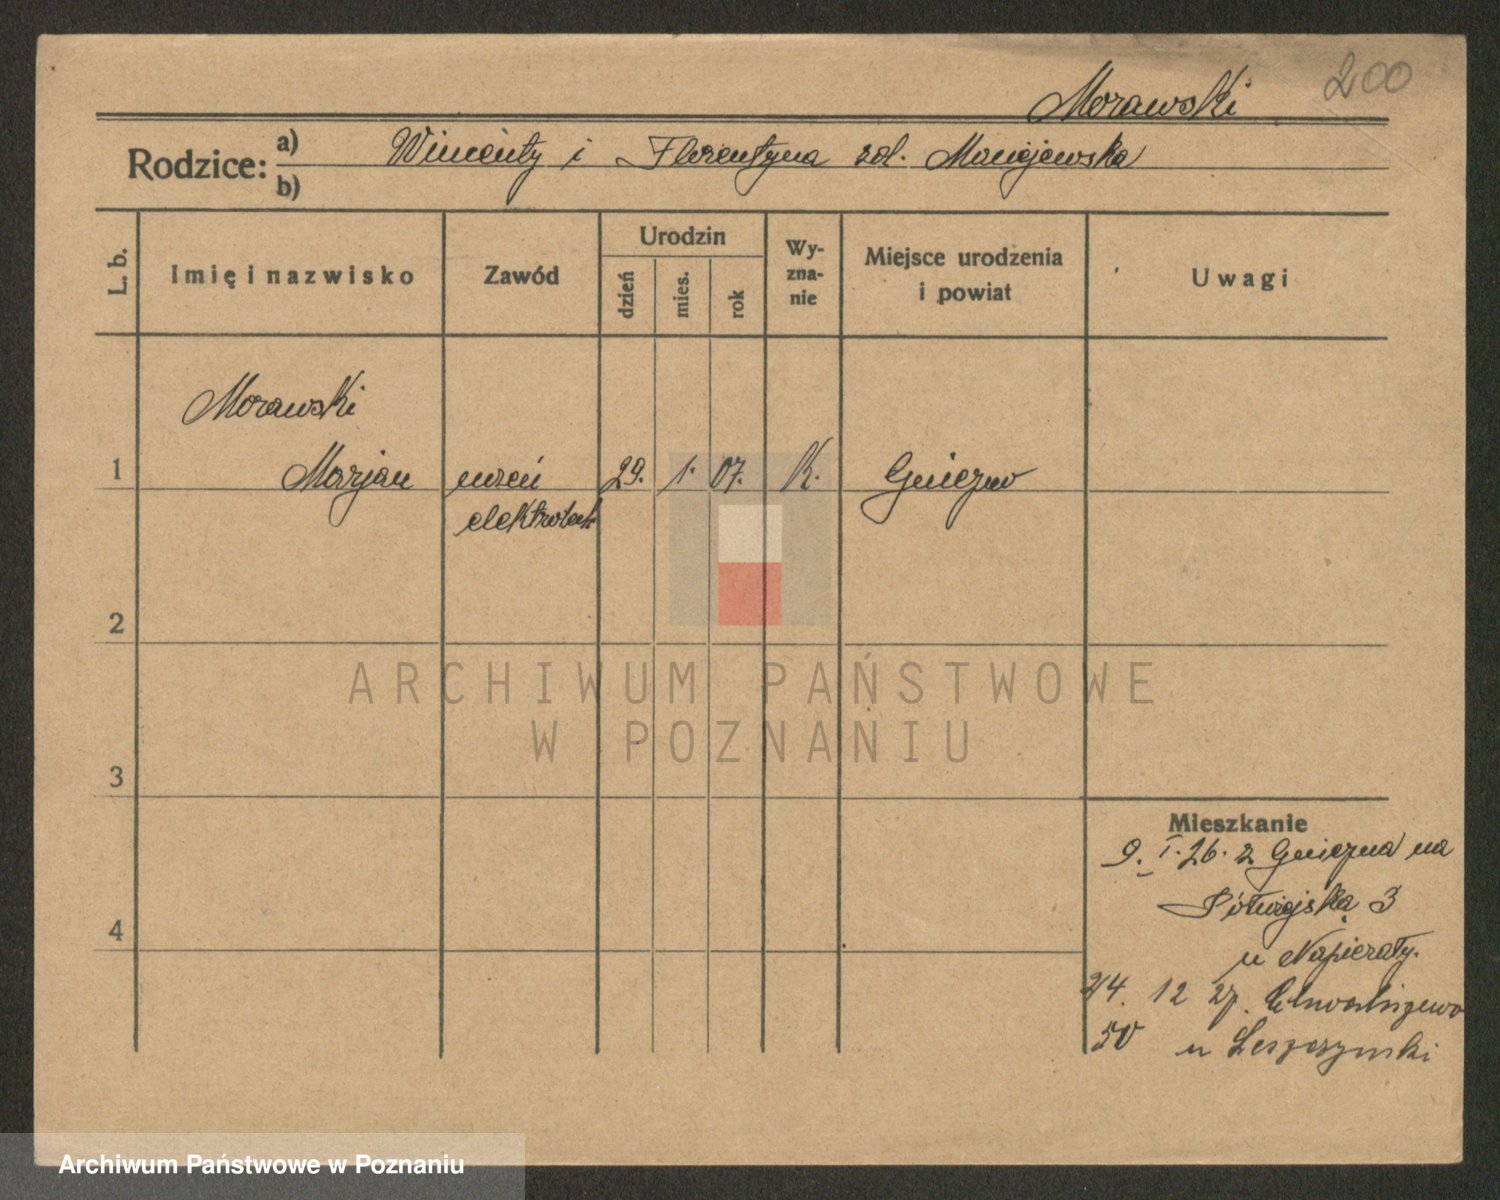 200
Morawski
Rodzice: a) Wincenty i Florentyna zd. Maciejewska
b)
L. b.
Imię i nazwisko
Zawód
Urodzin
dzień
mies.
rok
Wy-
zna-
nie
Miejsce urodzenia
i powiat
Uwagi
Morawski
1 Marjan uczeń 29. 1. 07. K. Gniezno
elektrotech
2
3
4
Mieszkanie
9. I. 26. z Gniezna na
Półwiejska 3
u Napierały.
24. 12 27. Chwaliszewo
50 u Leszczynski
ARCHIWUM PAŃSTWOWE
W POZNANIU
Archiwum Państwowe w Poznaniu